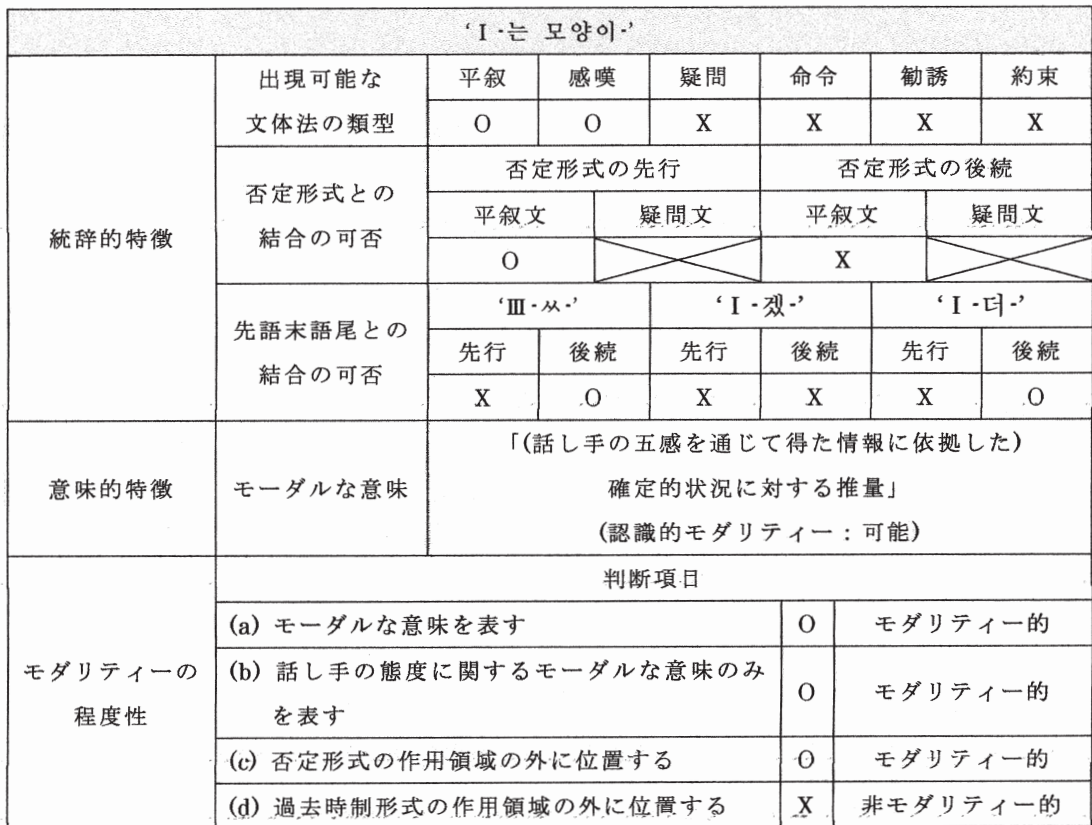 ‘Ⅰ-는 모양이-’
出現可能な
文体法の類型
平叙 感嘆 疑問 命令 勧誘 約束
O O X X X X
統辞的特徴
否定形式との
結合の可否
否定形式の先行 否定形式の後続
平叙文 疑問文 平叙文 疑問文
O X
先語末語尾との
結合の可否
‘Ⅲ-ㅆ-’ ‘Ⅰ-겠-’ ‘Ⅰ-더-’
先行 後続 先行 後続 先行 後続
X O X X X O
意味的特徴 モーダルな意味
「(話し手の五感を通じて得た情報に依拠した)
確定的状況に対する推量」
(認識的モダリティー：可能)
モダリティーの
程度性
判断項目
(a) モーダルな意味を表す O モダリティー的
(b) 話し手の態度に関するモーダルな意味のみ
を表す O モダリティー的
(c) 否定形式の作用領域の外に位置する O モダリティー的
(d) 過去時制形式の作用領域の外に位置する X 非モダリティー的